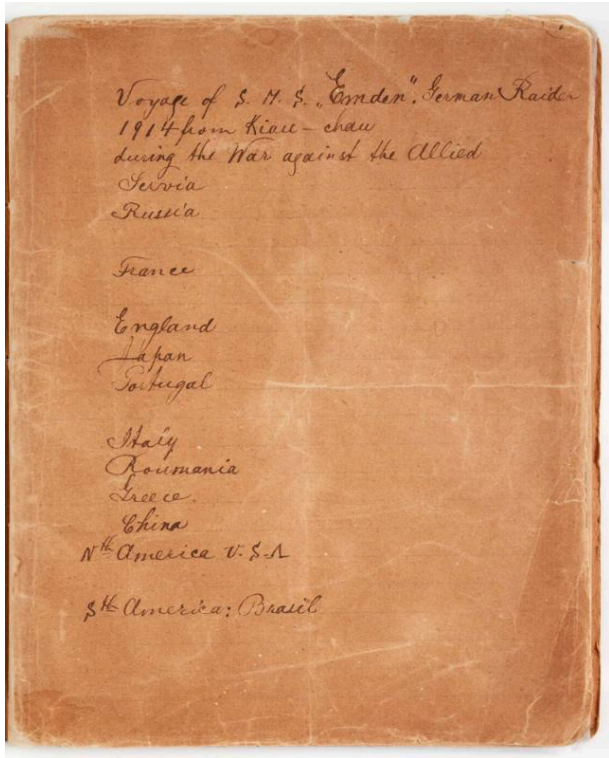 Voyage of S. M. S. „Emden". German Raider
1914 from Kiau-chau
during the War against the Allied
Servia
Russia
France
England
Japan
Portugal
Italy
Roumania
Greece.
China
Nth America U.S.A
Sth America: Brasil